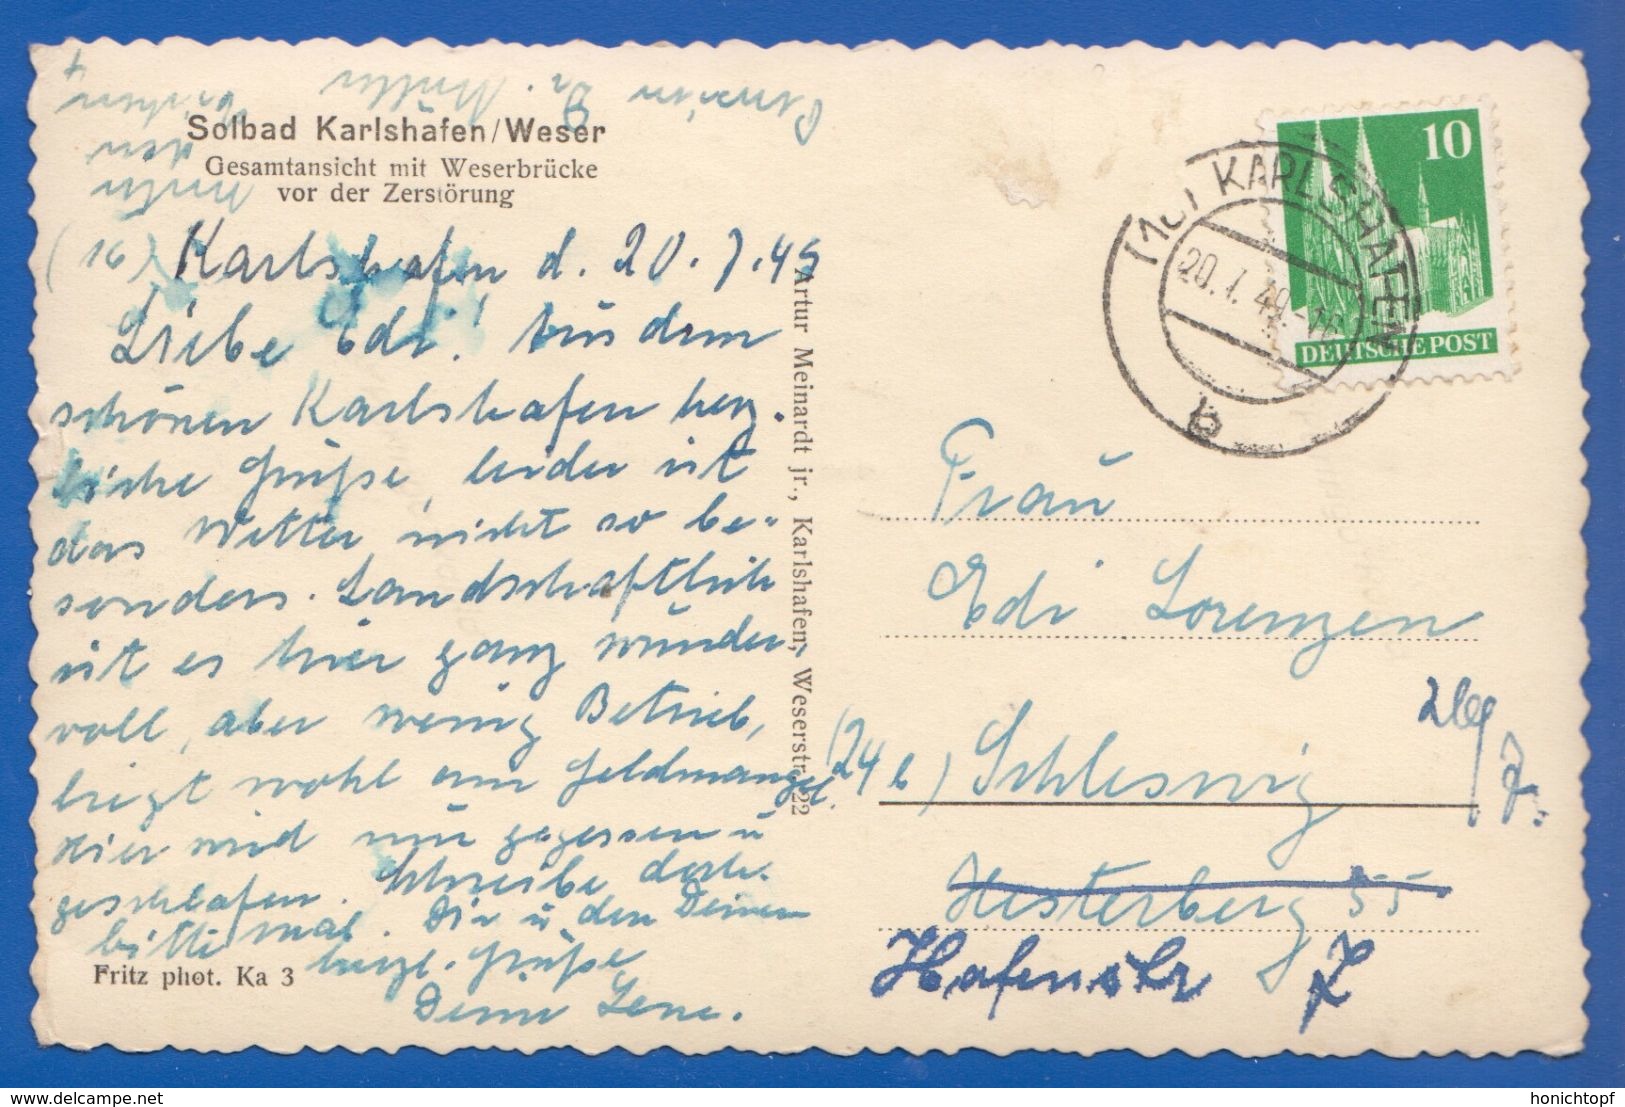 Pension Dr. Müller
Solbad Karlshafen/Weser
Gesamtansicht mit Weserbrücke
vor der Zerstörung
(16) Karlshafen d. 20.7.49
Liebe Edi! Aus dem
schönen Karlshafen herz-
liche Grüße, leider ist
das Wetter nicht so be-
sonders. Landschaftlich
ist es hier ganz wunder
voll, aber wenig Betrieb,
liegt wohl am Geldmangel.
Hier wird nur gegessen u
geschlafen. Schreibe doch
bitte mal. Dir u den Deinen
herzl. Grüße
Deine Lene.
Fritz phot. Ka 3
Artur Meinardt jr., Karlshafen, Weserstr. 22
10
DEUTSCHE POST
(16) KARLSHAFEN
20.7.49.-16
b
Frau
Edi Lorenzen
(24b) Schleswig
Hesterberg 55
Hafenstr 7